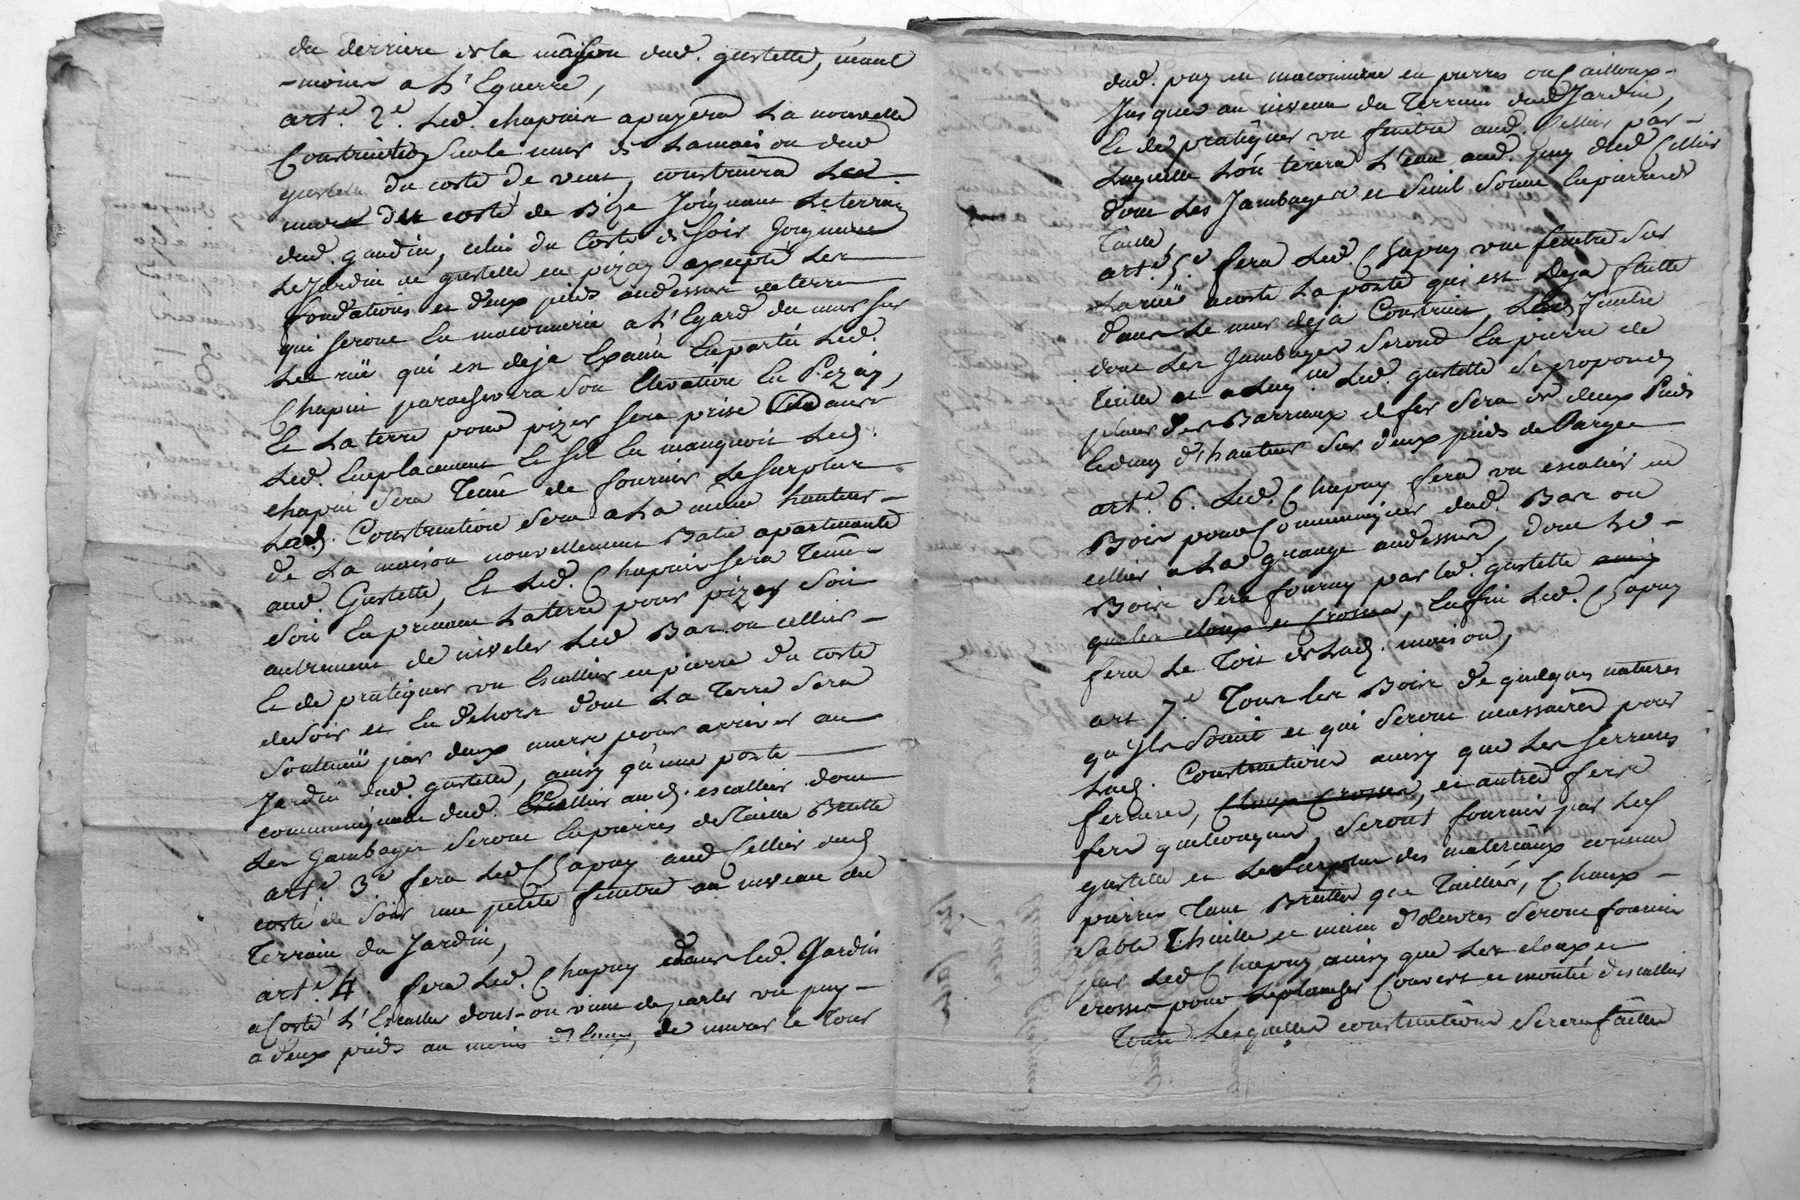 du derriere de la maison dud. gustette, neant
-moins a L'Equerre,
arte. 2e. Led. chapuis apuyera La nouvelle
Construction sur le mur de Lamaison dud
gustette du costé de vent, construira Les
murs du costé de Bize Joignant Le terrain
dud. gaudin, celui du Costé de soir Joignant
Le Jardin de gustette en pizay excepté Les
fondations et deux pieds audessus de terre
qui seront En maconnerie a L'Egard du mur sur
La rüe qui est deja Exauté En partie Led.
Chapui parachevera son Elevation En Pizay,
Et La terre pour pizer sera prise dans
Led. Emplacement Et si Il En manquoit Led.
chapui sera Tenu de fournir Le surplus
Lad. Construction sera a La même hauteur
de La maison nouvellement Batie apartenante
aud. Gustette, Et Led. Chapuis sera Tenu
soit En prenant La terre pour pizer soit
autrement de niveler Led Bas ou cellier
Et de pratiquer un Escallier en pierre du costé
de soir et En dehors dont La Terre sera
soutenüe par deux murs pour arriver au
Jardin dud. gustette, ainsy qu'une porte
communiquant dud. Cellier aud. escallier dont
Les Jambages seront En pierres de Taille Brutte
arte. 3e fera Led Chapuy aud Cellier dud
costé de soir une petite fenetre au niveau du
Terrain du Jardin,
arte. 4 fera Led. Chapuy dans led. Jardin
a Costé L'Escallier dont on vient de parler un puy
a deux pieds au moins d'Eaux, de murer le Tour
dud. puy en maconnerie en pierres ou Cailloux
Jusques au niveau du Terrain dud Jardin,
Et de pratiquer un fenêtre aud. Cellier par
Laquelle L'on tirera L'eau aud. puy dud Cellier
dont Les Jambages et Seuil Sont En pierre de
Taille,
arte. 5e fera Led Chapuy une fenetre sur
La rüe a costé La porte qui est deja faitte
dans Le mur deja Construit, Lad. fenetre
dont Les Jambages Seront En pierre de
Taille et a Laq.lle Led. gustette se propose de
placer des Barreaux de fer sera de deux Pieds
et demy d'hauteur sur deux pieds de Largeur
arte. 6. Led. Chapuy fera un escalier en
Bois pour Communiquer dud. Bas ou
cellier a La grange audessus, dont Le
Bois sera fourny par led. gustette ainsy
que les cloux et crosses, Enfin Led. Chapuy
fera Le Toit de Lad. maison,
art 7e. Tous les Bois de quelques natures
qu'Ils soient et qui seront necessaires pour
Lad. Construction ainsy que Les serrures
ferrures, Cloux Crosses, et autres fers
fers quelconques, seront fournis par Led
gustette et Le surplus des materiaux comme
pierres Tant Bruttes que Taillées, Chaux
Sable Thuille et main d'oeuvres seront fournis
par Led Chapuy ainsy que Les cloux et
crosses pour Le plancher Couvert et montée d'escallier
Toutes Lesquelles constructions seront faittes